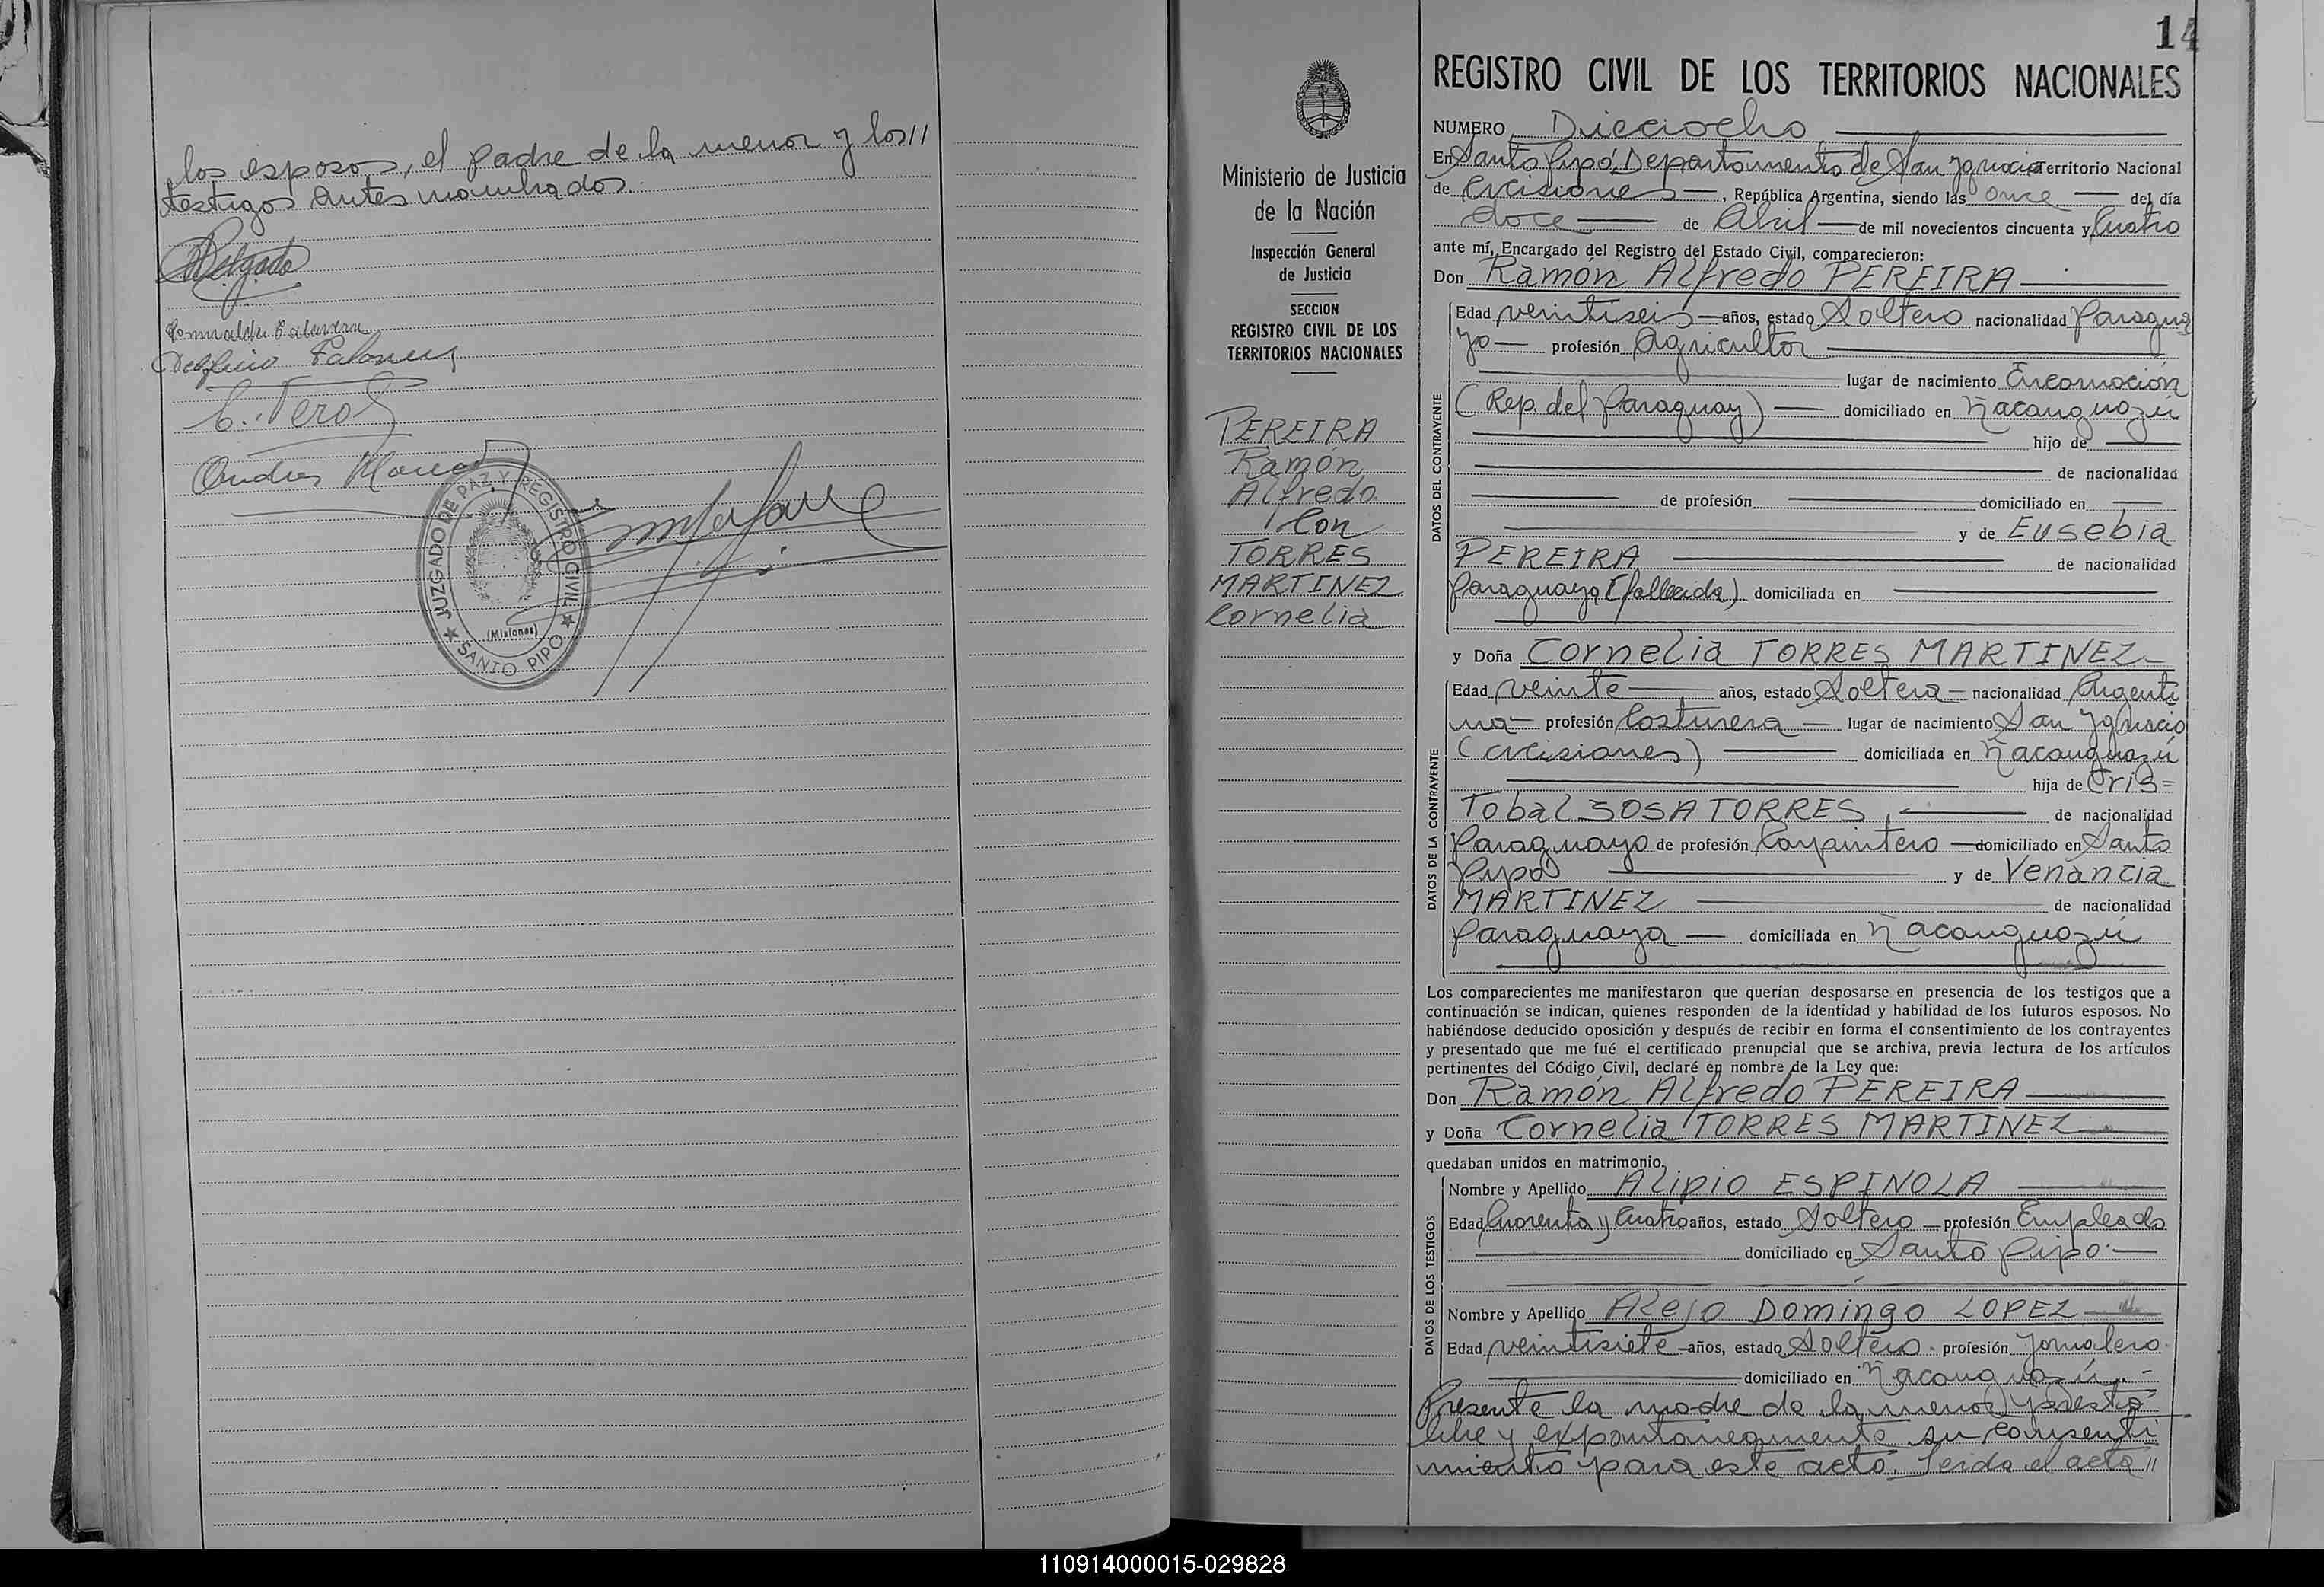 los esposos, el padre de la menor y los//
testigos antes nombrados.
Delgado
Delfino
C. Vero
Andres
JUZGADO DE PAZ Y REGISTRO CIVIL
(Misiones)
SANTO PIPO
14
Ministerio de Justicia
de la Nación
Inspección General
de Justicia
SECCION
REGISTRO CIVIL DE LOS
TERRITORIOS NACIONALES
PEREIRA
Ramón
Alfredo
Con
TORRES
MARTINEZ
Cornelia
REGISTRO CIVIL DE LOS TERRITORIOS NACIONALES
NUMERO Dieciocho
En Santo Pipó, Departamento de San Ignacio Territorio Nacional
de Misiones, República Argentina, siendo las once del día
doce de Abril de mil novecientos cincuenta y Cuatro
ante mí, Encargado del Registro del Estado Civil, comparecieron:
Don Ramón Alfredo PEREIRA
DATOS DEL CONTRAYENTE
Edad veintiseis años, estado Soltero nacionalidad Paragua
yo profesión Agricultor
lugar de nacimiento Encarnación
(Rep. del Paraguay) domiciliado en Ñacanguazú
hijo de
de nacionalidad
de profesión domiciliado en
y de Eusebia
PEREIRA de nacionalidad
Paraguaya (fallecida) domiciliada en
y Doña Cornelia TORRES MARTINEZ
DATOS DE LA CONTRAYENTE
Edad veinte años, estado Soltera nacionalidad Argenti
na profesión Costurera lugar de nacimiento San Ignacio
(Misiones) domiciliada en Ñacanguazú
hija de Cris=
Tobal SOSA TORRES, de nacionalidad
Paraguayo de profesión Carpintero domiciliado en Santo
Pipó y de Venancia
MARTINEZ de nacionalidad
Paraguaya domiciliada en Ñacanguazú
Los comparecientes me manifestaron que querían desposarse en presencia de los testigos que a
continuación se indican, quienes responden de la identidad y habilidad de los futuros esposos. No
habiéndose deducido oposición y después de recibir en forma el consentimiento de los contrayentes
y presentado que me fué el certificado prenupcial que se archiva, previa lectura de los artículos
pertinentes del Código Civil, declaré en nombre de la Ley que:
Don Ramón Alfredo PEREIRA
y Doña Cornelia TORRES MARTINEZ
quedaban unidos en matrimonio.
DATOS DE LOS TESTIGOS
Nombre y Apellido Alipio ESPINOLA
Edad Cuarenta y Cuatro años, estado Soltero profesión Empleado
domiciliado en Santo Pipó.
Nombre y Apellido Alejo Domingo LOPEZ
Edad veintisiete años, estado Soltero profesión Jornalero
domiciliado en Ñacanguazú.
Presente la madre de la menor prestó
libre y expontaneamente su consenti
miento para este acto. Leida el acta//
110914000015-029828